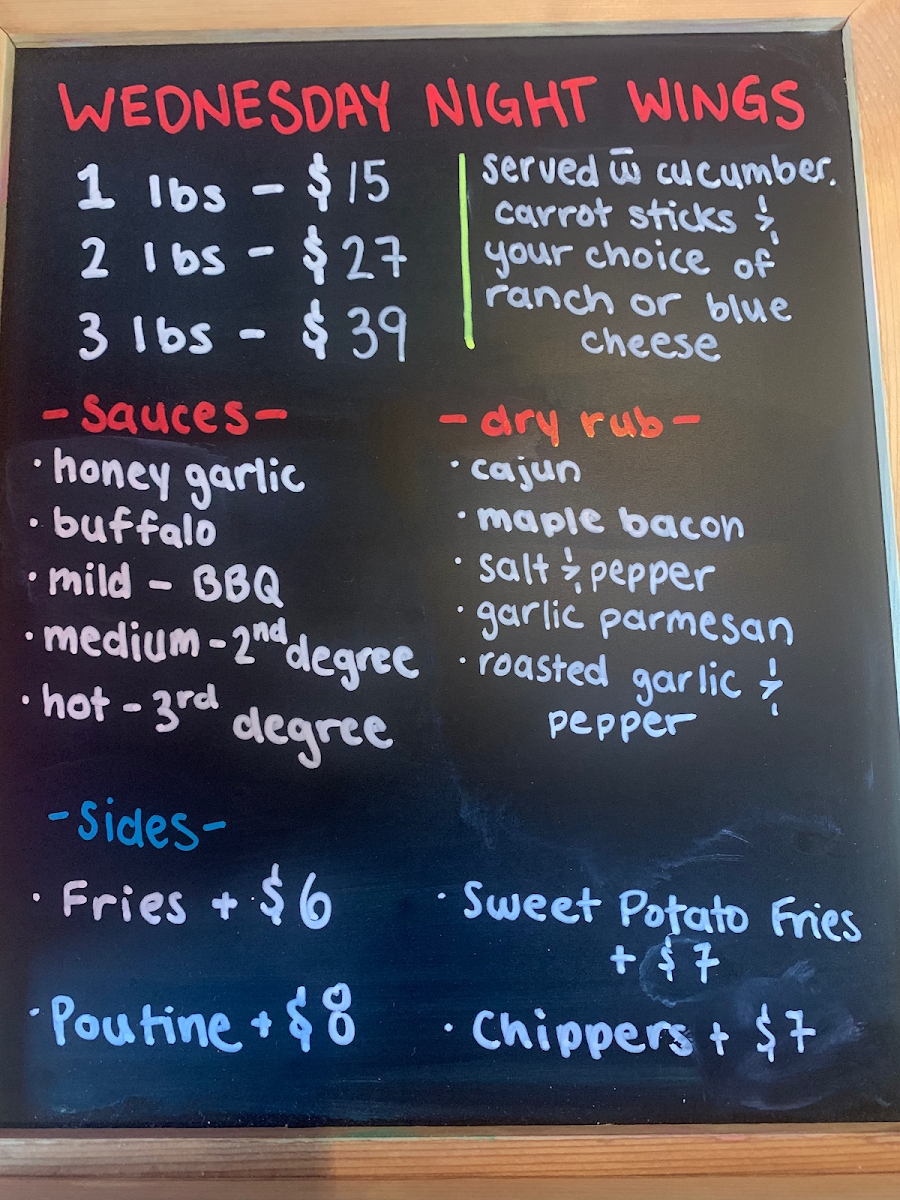 WEDNESDAY NIGHT WINGS
1 lbs - $15
2 lbs - $27
3 lbs - $39
served w̅ cucumber,
carrot sticks &
your choice of
ranch or blue
cheese
- Sauces -
· honey garlic
· buffalo
· mild - BBQ
· medium - 2nd degree
· hot - 3rd degree
- dry rub -
· cajun
· maple bacon
· salt & pepper
· garlic parmesan
· roasted garlic &
pepper
- Sides -
· Fries + $6
· Poutine + $8
· Sweet Potato Fries
+ $7
· Chippers + $7